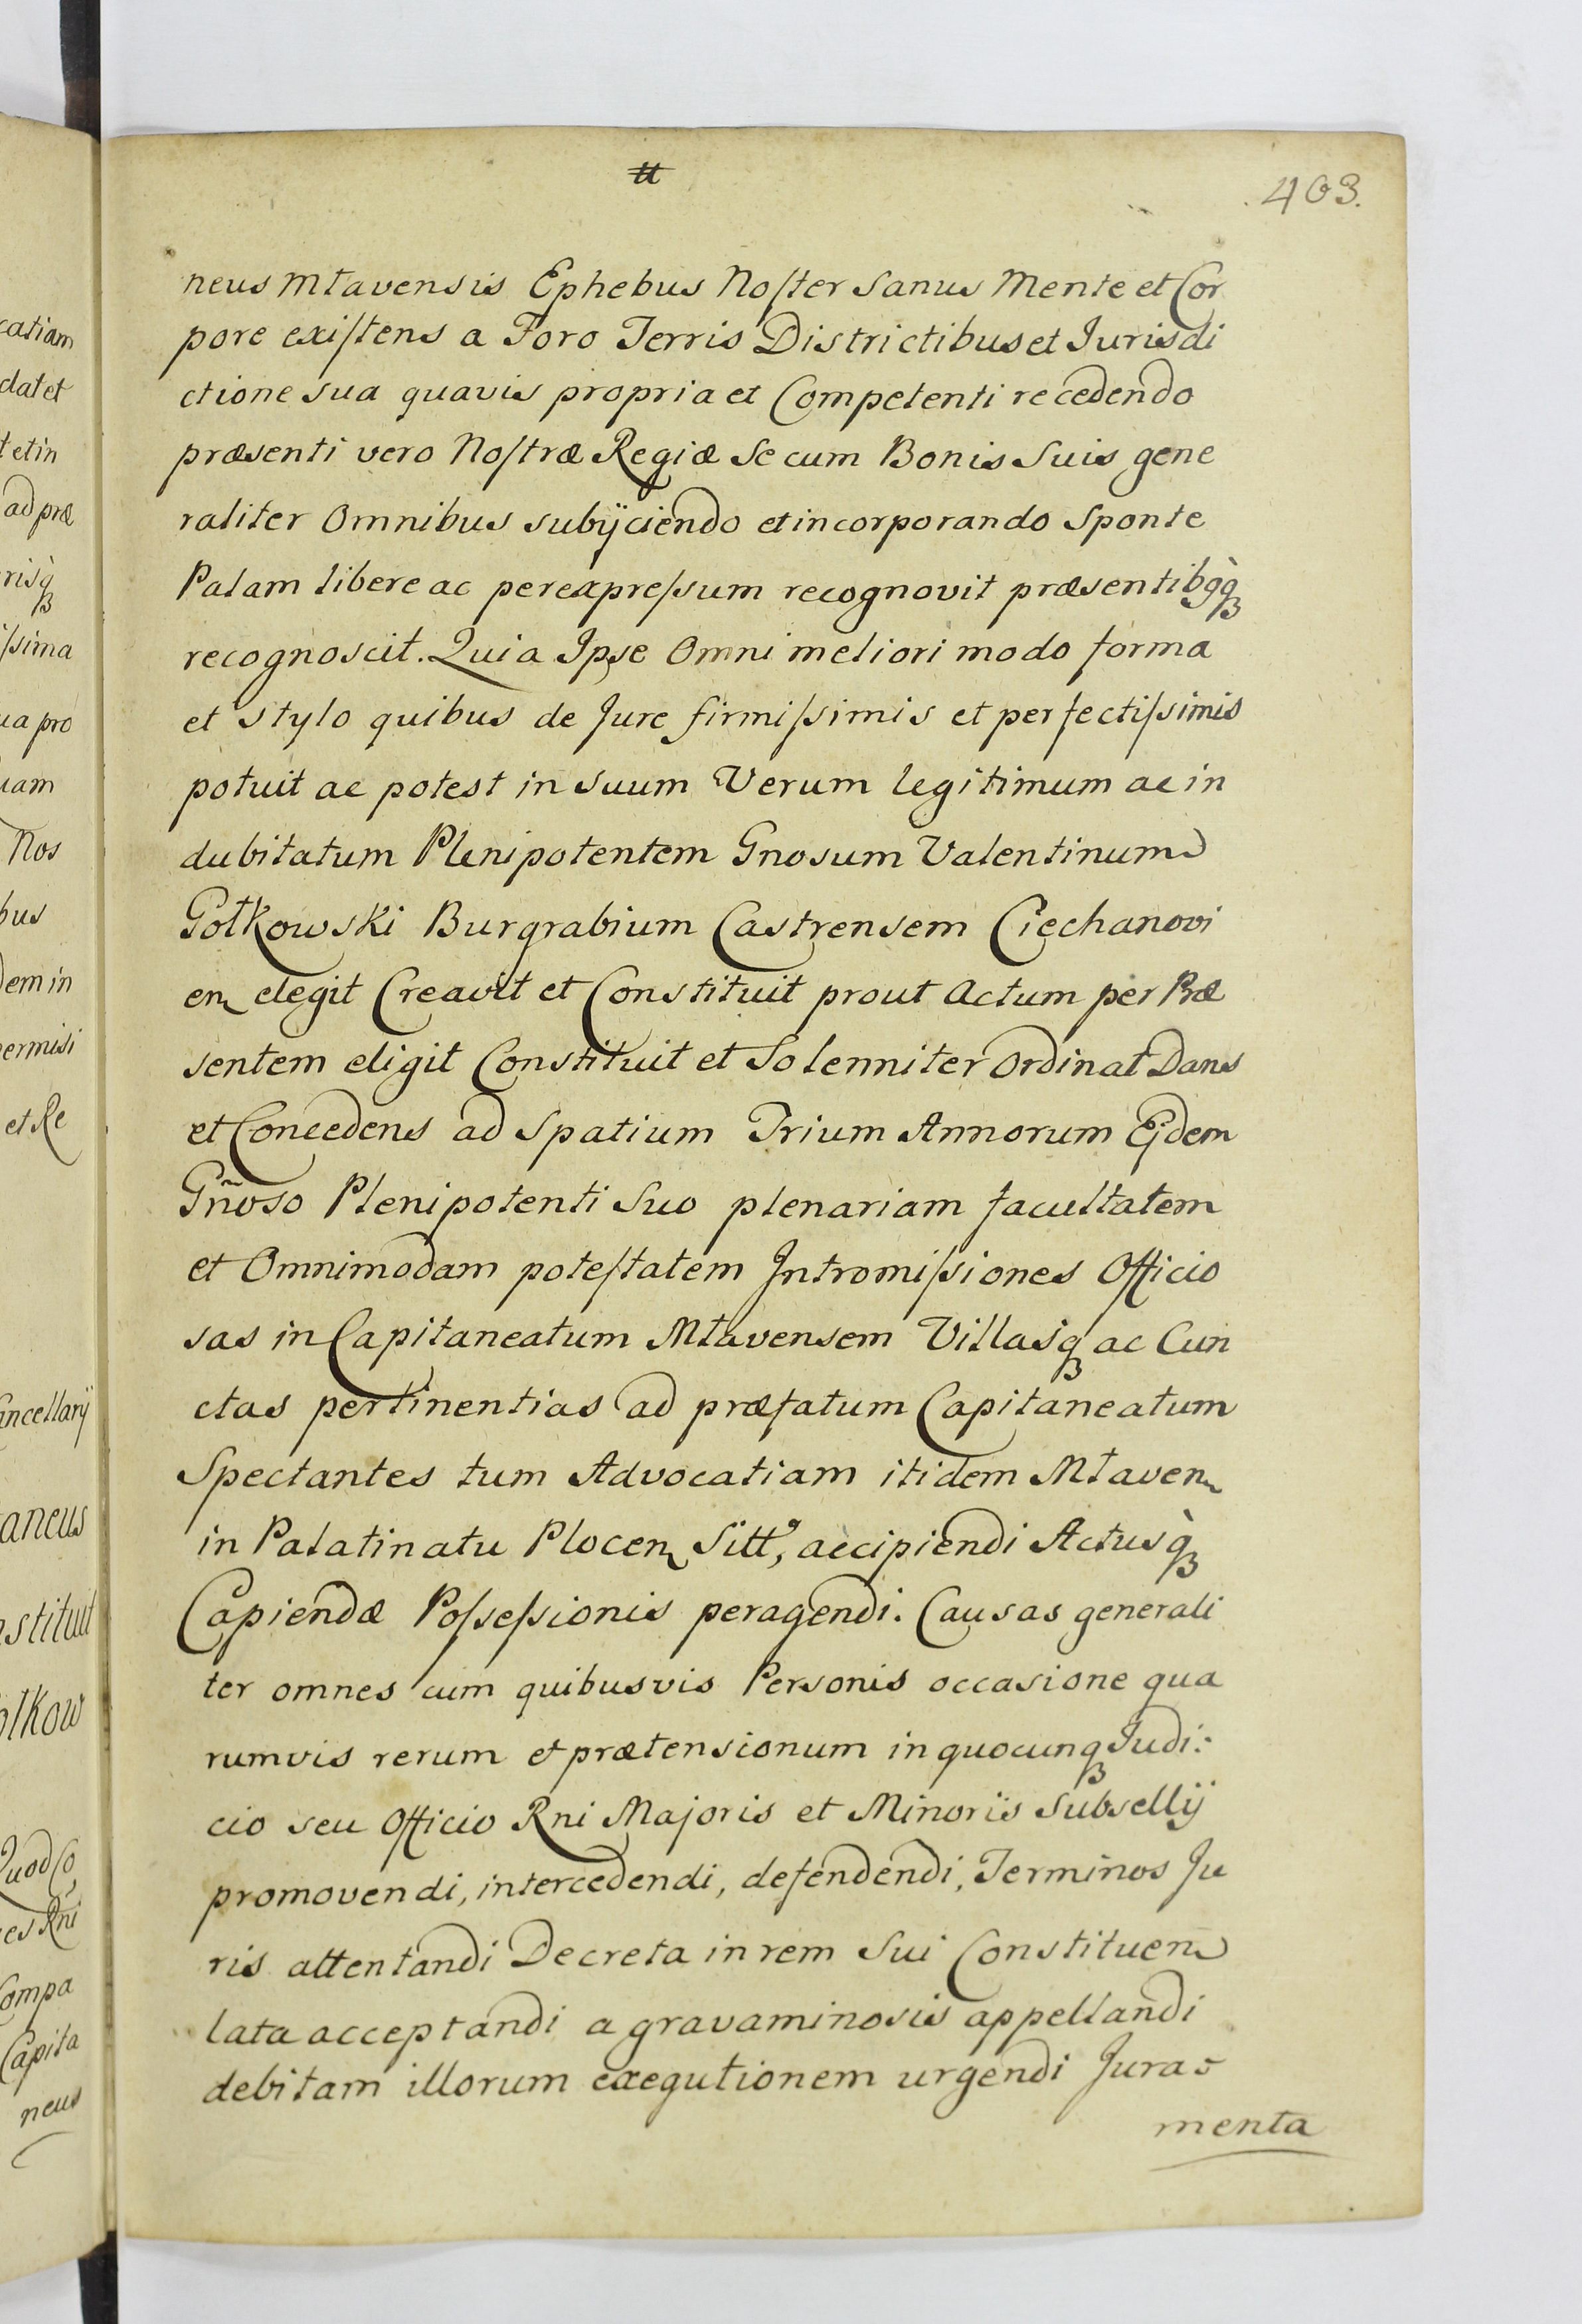 tt
403.
neus Młavensis Ephebus Noster Sanus Mente et Cor
pore existens a Foro Terris Districtibus et Jurisdi
ctione sua quavis propria et Competenti recedendo
præsenti vero Nostræ Regiæ Se cum Bonis Suis gene
raliter Omnibus subijciendo et incorporando Sponte
Palam libere ac per expressum recognovit præsentibqq
recognoscit. Quia Ipse Omni meliori modo forma
et stylo quibus de Jure firmissimis et perfectissimis
potuit ac potest in suum Verum legitimum ac in
dubitatum Plenipotentem Gnosum Valentinum
Gołkowski Burgrabium Castrensem Ciechanovi
en elegit Creavit et Constituit prout Actum per Præ
sentem eligit Constituit et Solenniter Ordinat Dans
et Concedens ad Spatium Trium Annorum Ejdem
Gñoso Plenipotenti Suo plenariam facultatem
et Omnimodam potestatem Intromissiones Officio
sas in Capitaneatum Młavensem Villasq ac Cun
ctas pertinentias ad præfatum Capitaneatum
Spectantes tum Advocatiam itidem Młaven
in Palatinatu Plocen Sitt, accipiendi Actusq
Capiendæ Possessionis peragendi. Causas generali
ter omnes cum quibusvis Personis occasione qua
rumvis rerum et prætensionum in quocunq Judi:
cio seu Officio Rni Majoris et Minoris Subsellij
promovendi, intercedendi, defendendi, Terminos Ju
ris attentandi Decreta in rem Sui Constituen
lata acceptandi a gravaminosis appellandi
debitam illorum exequtionem urgendi Jura-
menta